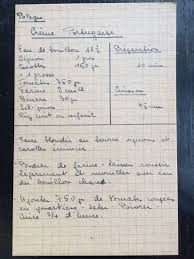 Potages
Crème Portugaise
Eau ou bouillon 1 l ½ Préparation
Oignon 1 gros
Carotte 150 gr 10 min.
1 grosse
Tomates 750 gr Cuisson
Farine 2 cuill
Beurre 30 gr 45 min
Sel poivre
Riz ou
- Faire blondir au beurre oignons et
carottes émincés
- Poudrer de farine - laisser roussir
légèrement et mouiller avec eau
ou bouillon chaud.
- Ajouter 750 gr de tomates coupées
en quartiers - saler - Poivrer
Cuire 3/4 d'heure.